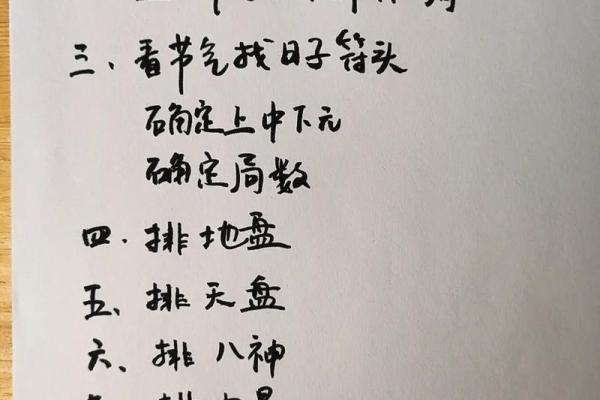 三、看节气找日子符头
确定上中下元
确定局数
四.排地盘
五、排天盘
六、排八神